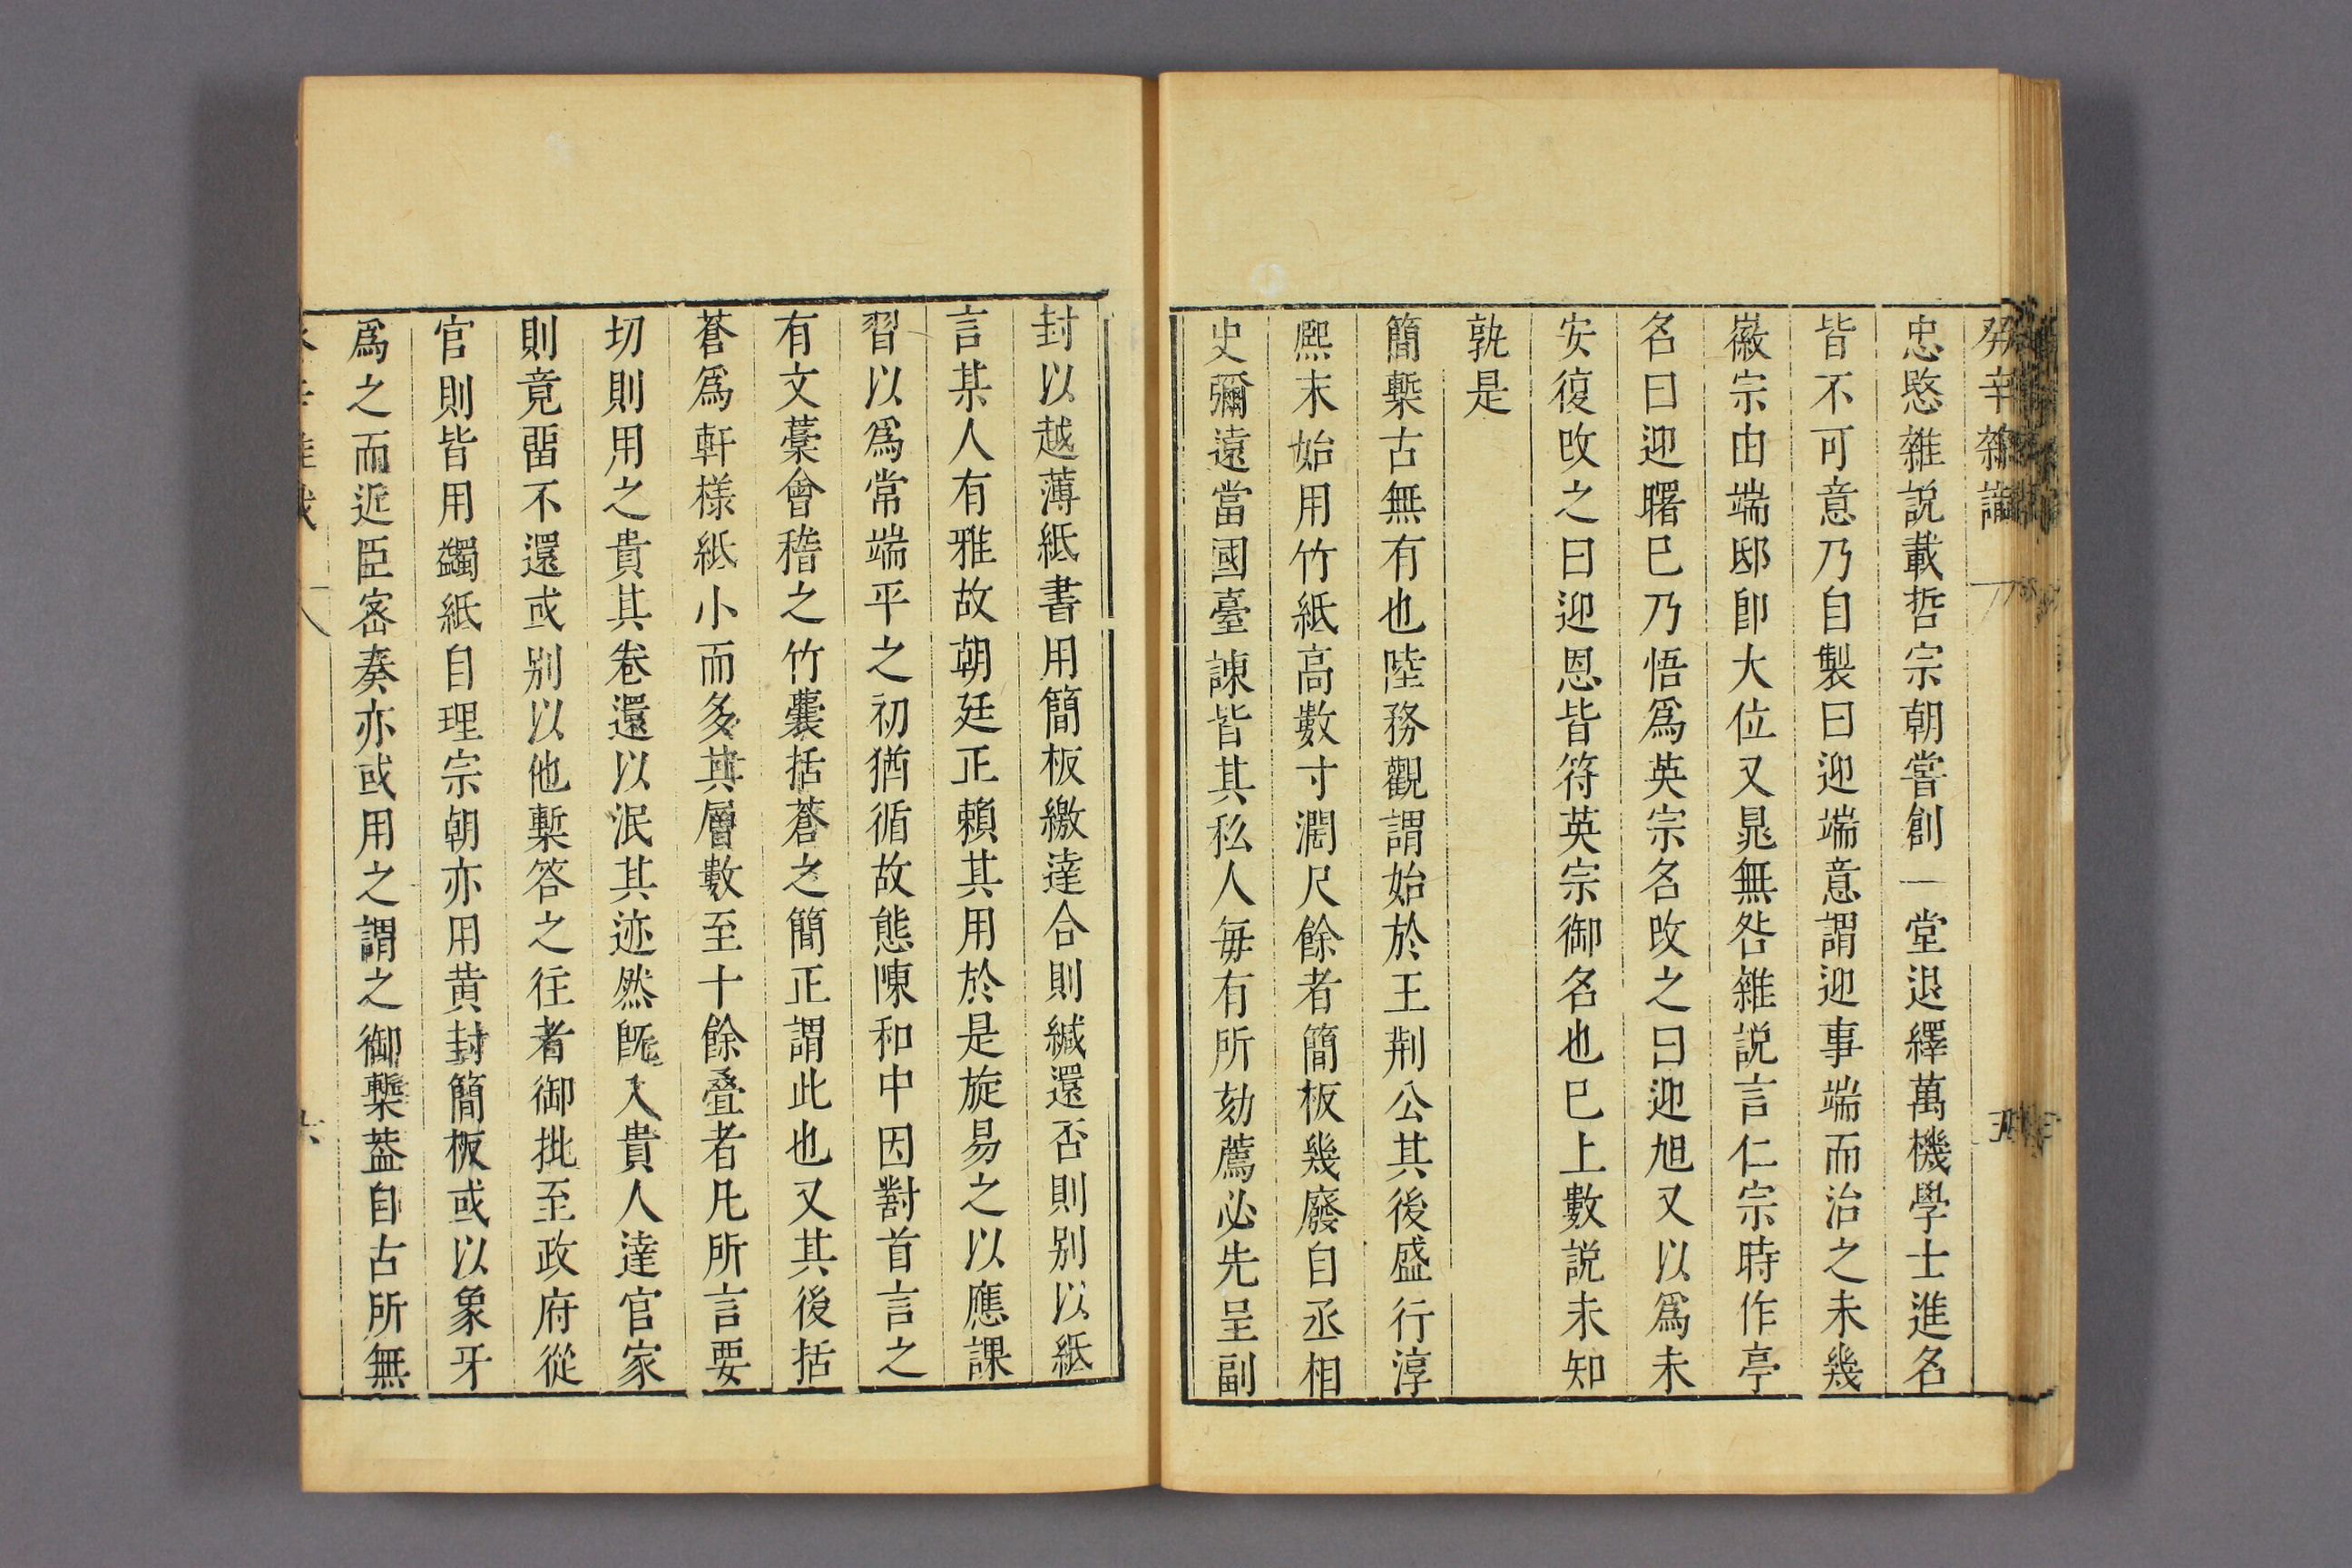 癸辛雜識
忠愍雜説載哲宗朝嘗創一堂退繹萬機學士進名
皆不可意乃自製曰迎端意謂迎事端而治之未幾
徽宗由端邸卽大位又晁無咎雜説言仁宗時作亭
名曰迎曙巳乃悟爲英宗名改之曰迎旭又以爲未
安復改之曰迎恩皆符英宗御名也巳上數説未知
孰是
簡槧古無有也陸務觀謂始於王荆公其後盛行淳
熙末始用竹紙高數寸濶尺餘者簡板幾廢自丞相
史彌遠當國臺諫皆其私人毎有所劾薦必先呈副
封以越薄紙書用簡板繳達合則緘還否則别以紙
言某人有雅故朝廷正賴其用於是旋易之以應課
習以爲常端平之初猶循故態陳和中因對首言之
有文藁會稽之竹囊括蒼之簡正謂此也又其後括
蒼爲軒樣紙小而多其層數至十餘疊者凡所言要
切則用之貴其卷還以泯其迹然旣入貴人達官家
則竟畱不還或别以他槧答之往者御批至政府從
官則皆用蠲紙自理宗朝亦用黄封簡板或以象牙
爲之而近臣宻奏亦或用之謂之御槧葢自古所無